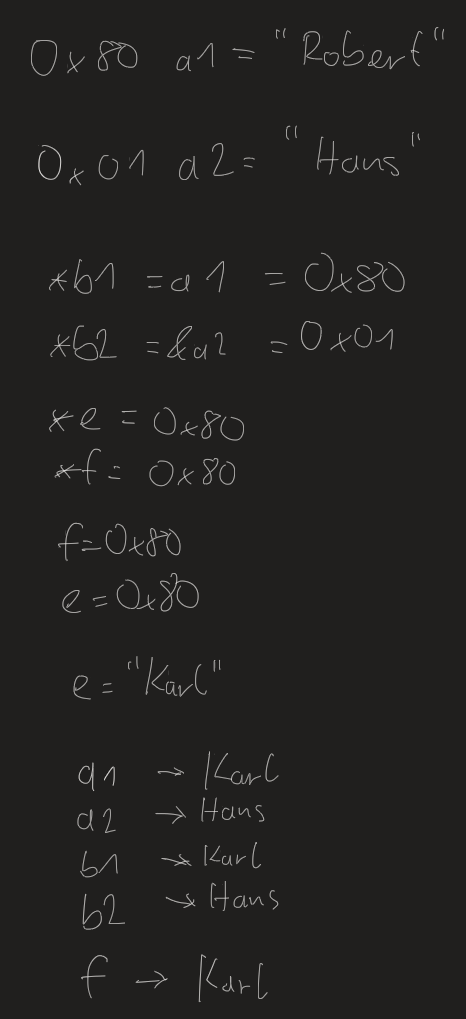 0x80 a1 = "Robert"
0x01 a2 = "Hans"
*b1 = a1 = 0x80
*b2 = &a2 = 0x01
*e = 0x80
*f = 0x80
f = 0x80
e = 0x80
e = "Karl"
a1 → Karl
a2 → Hans
b1 → Karl
b2 → Hans
f → Karl